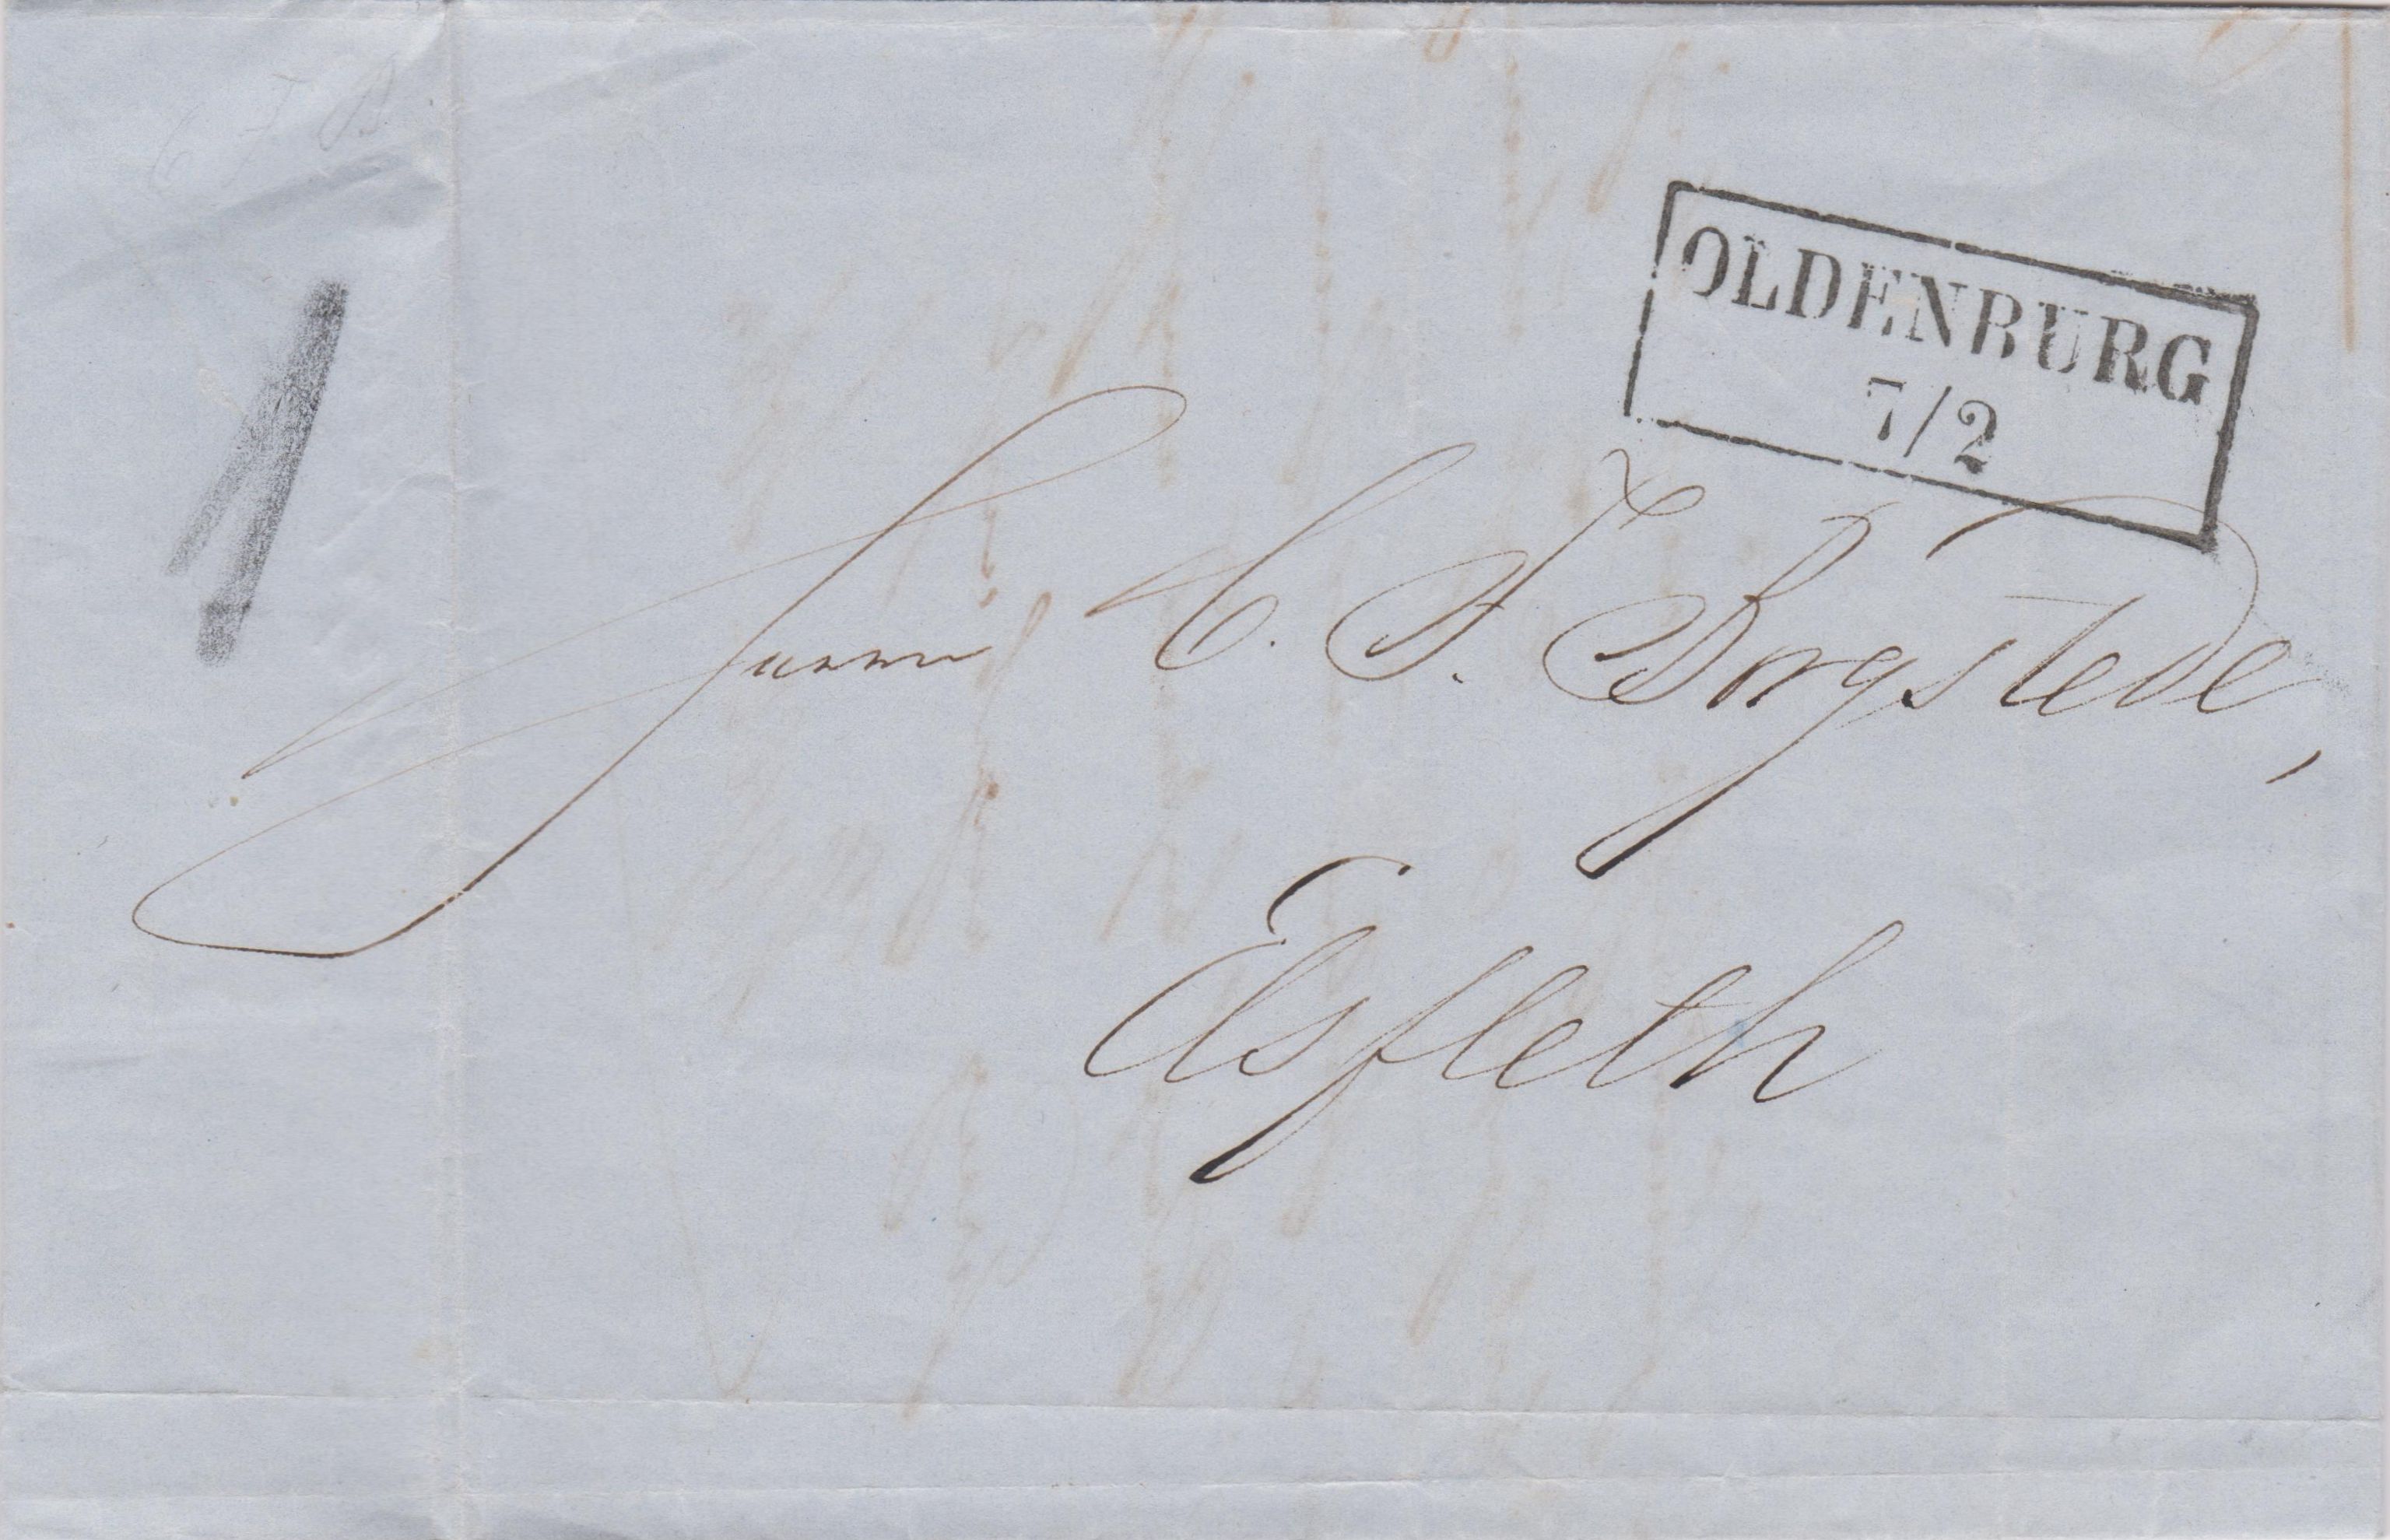 OLDENBURG
7/2
1
Herrn C. F. Borgstede,
Elsfleth